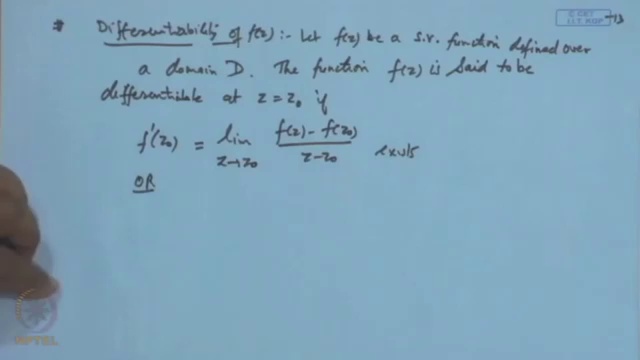 © CET
I.I.T. KGP
-13
# Differentiability of f(z) :- Let f(z) be a s.v. function defined over
a domain D. The function f(z) is said to be
differentiable at z = z₀ if
f'(z₀) = lim z→z₀ (f(z) - f(z₀)) / (z - z₀) exists
OR
NPTEL